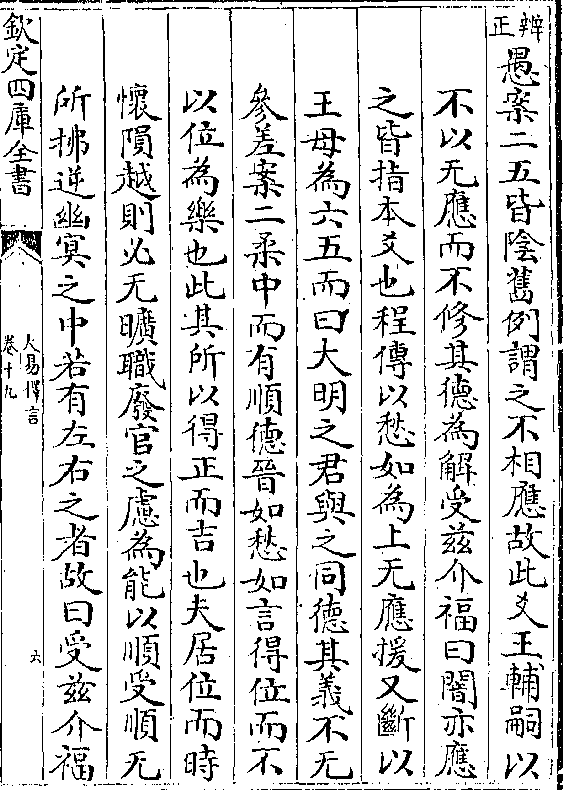 辨正愚案二五皆陰舊例謂之不相應故此爻王輔嗣以
不以无應而不修其德為解受兹介福曰闇亦應
之皆指本爻也程傳以愁如為上无應援又斷以
王母為六五而曰大明之君與之同德其義不无
參差案二柔中而有順德晉如愁如言得位而不
以位為樂也此其所以得正而吉也夫居位而時
懷隕越則必无曠職廢官之慮為能以順受順无
所拂逆幽冥之中若有左右之者故曰受兹介福
欽定四庫全書
大易擇言
卷十九
六